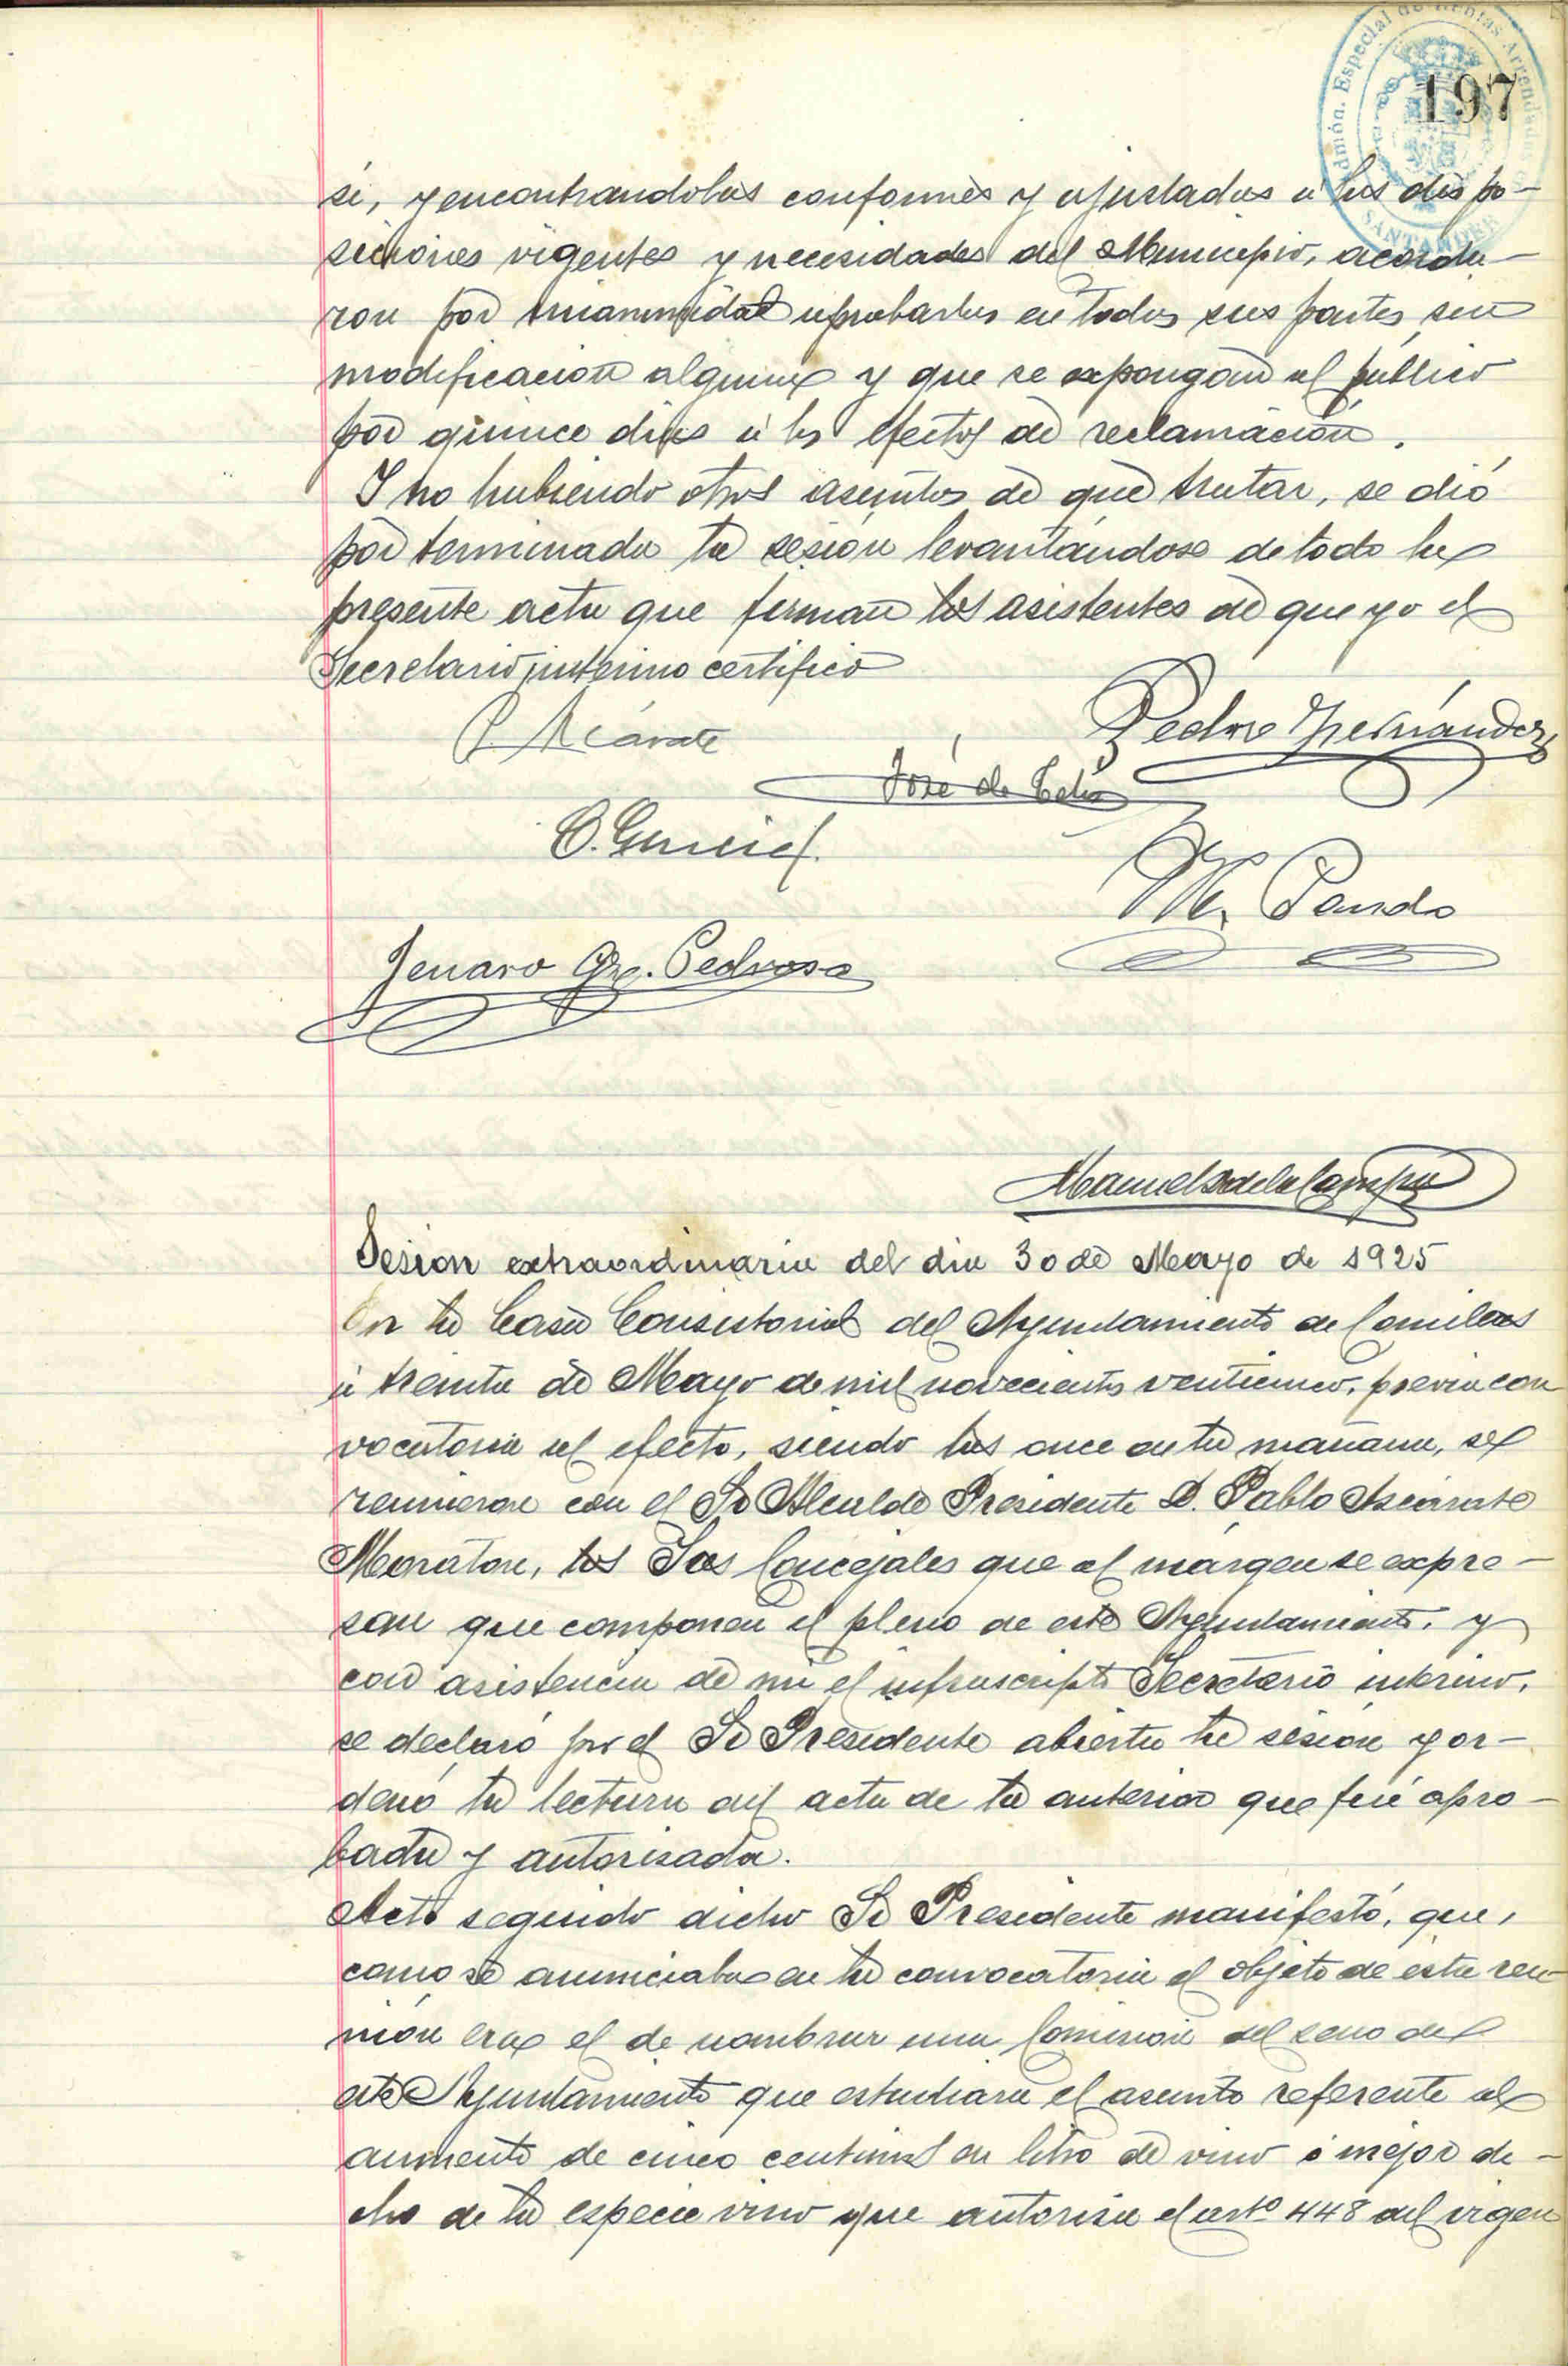 Admón. Especial de Rentas Arrendadas
SANTANDER
197
si, y encontrandolas conformes y ajustadas a las dispo-
siciones vigentes y necesidades del Municipio, acorda-
ron por unanimidad aprobarlas en todas sus partes sin
modificacion alguna y que se expongan al público
por quince dias a los efectos de reclamación.
Y no habiendo otros asuntos de que tratar, se dió
por terminada la sesión levantándose de todo la
presente acta que firman los asistentes de que yo el
Secretario interino certifico
P. Azcárate
Pedro Fernández
José de Celis
O. García
M. Pando
Jenaro Gz. Pedrosa
Manuel S. de la Campa
Sesion extraordinaria del dia 30 de Mayo de 1925
En la Casa Consistorial del Ayuntamiento de Comillas
a treinta de Mayo de mil novecientos venticinco, previa con
vocatoria al efecto, siendo las once de la mañana, se
reunieron con el Sr Alcalde Presidente D. Pablo Azcárate
los Sres Concejales que al márgen se expre-
san que componen el pleno de este Ayuntamiento, y
con asistencia de mi el infrascripto Secretario interino,
se declaró por el Sr Presidente abierta la sesion y or-
denó la lectura del acta de la anterior que fué apro-
bada y autorizada.
Acto seguido dicho Sr Presidente manifestó, que,
como se anunciaba en la convocatoria el objeto de esta reu
nión era el de nombrar una Comision del seno de
este Ayuntamiento que estudiara el asunto referente al
aumento de cinco centimos en litro de vino ó mejor di-
cho de la especie vino que autoriza el artº 448 del vigen